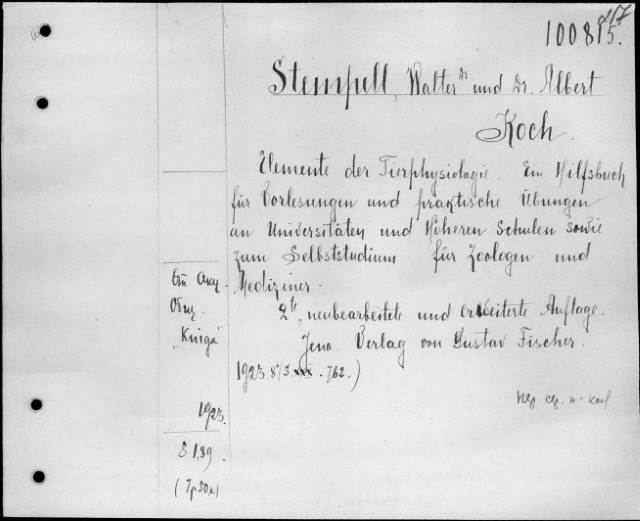 100815.
Stempell, Walter Dr und Dr. Albert
Koch.
Elemente der Tierphysiologie. Ein Hilfsbuch
für Vorlesungen und praktische Übungen
an Universitäten und Höheren Schulen sowie
zum Selbststudium für Zoologen und
Mediziner.
2te, neubearbeitete und erweiterte Auflage.
Jena. Verlag von Gustav Fischer.
1923. 8º/3. . 762.)
"Kniga"
1923.
$ 1,89.
(7p50k)